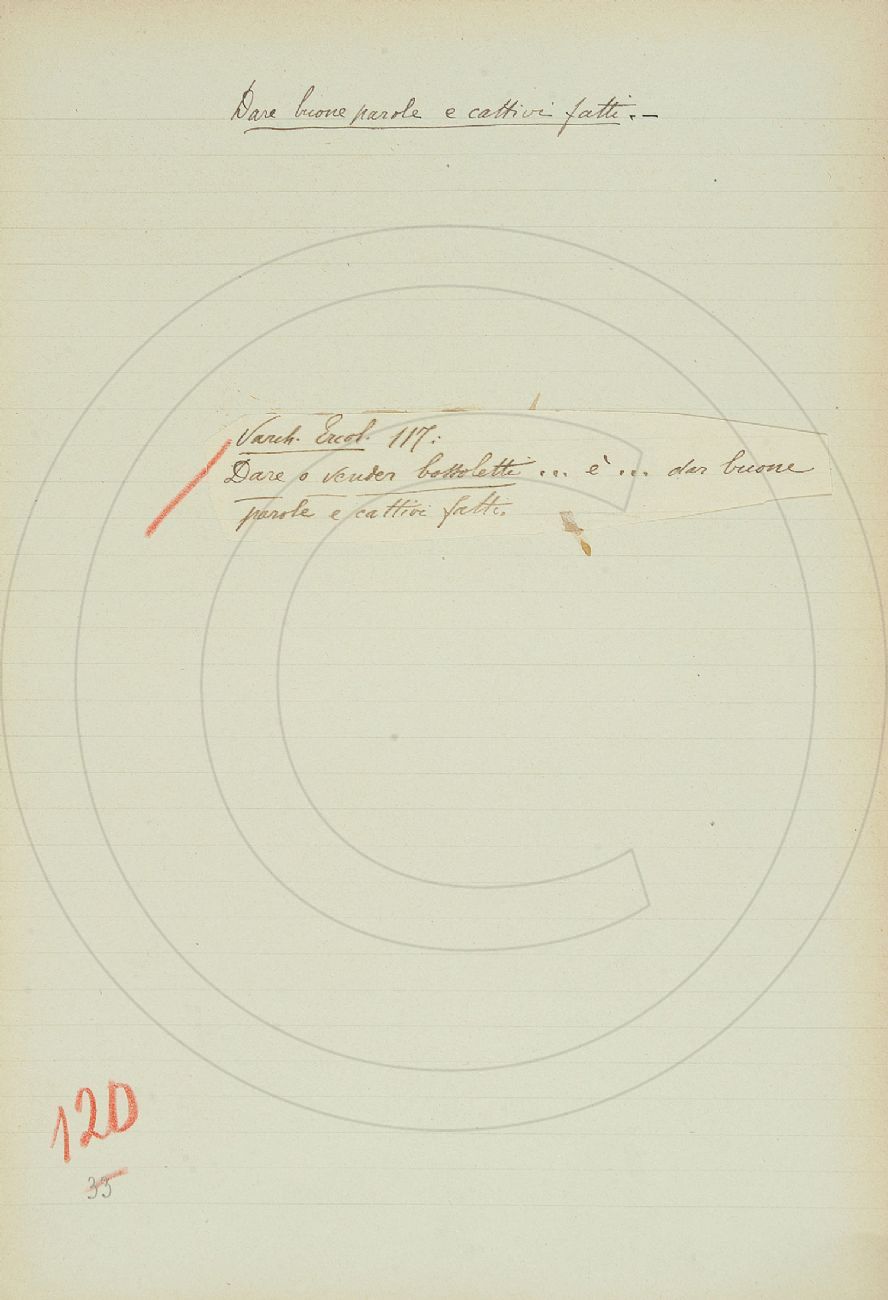 Dare buone parole e cattivi fatti. —
Varch. Ercol. 117:
Dare o vender bossoletti ... è ... dar buone
parole e cattivi fatti.
120
35